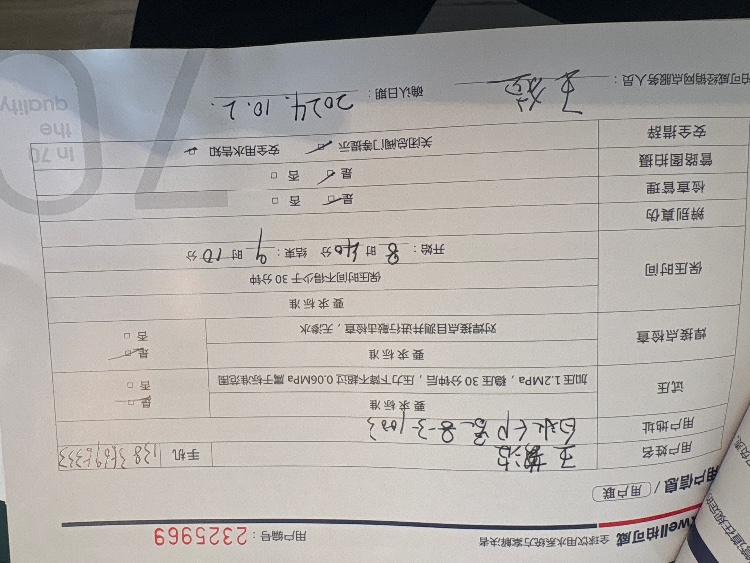 xwell柏可威 全球饮用水系统方案解决者 用户编号：2325969
用户信息 / 用户联
用户姓名 王 手机
用户地址 8-3-1003
试压 要求标准 是
加压1.2MPa，稳压30分钟后，压力下降不超过0.06MPa属于标准范围 否
焊接点检查 要求标准 是
对焊接点目测并进行敲击检查，无渗水 否
保压时间 要求标准
保压时间不得少于30分钟
开始：8时40分 结束：9时10分
辨别真伪
检查管理 是 否
管路图拍摄 是 否
安全措辞 关闭总阀门等提示 安全用水告知
柏可威经销网点服务人员： 王 确认日期：2024.10.2.
In 70
the
quality
70